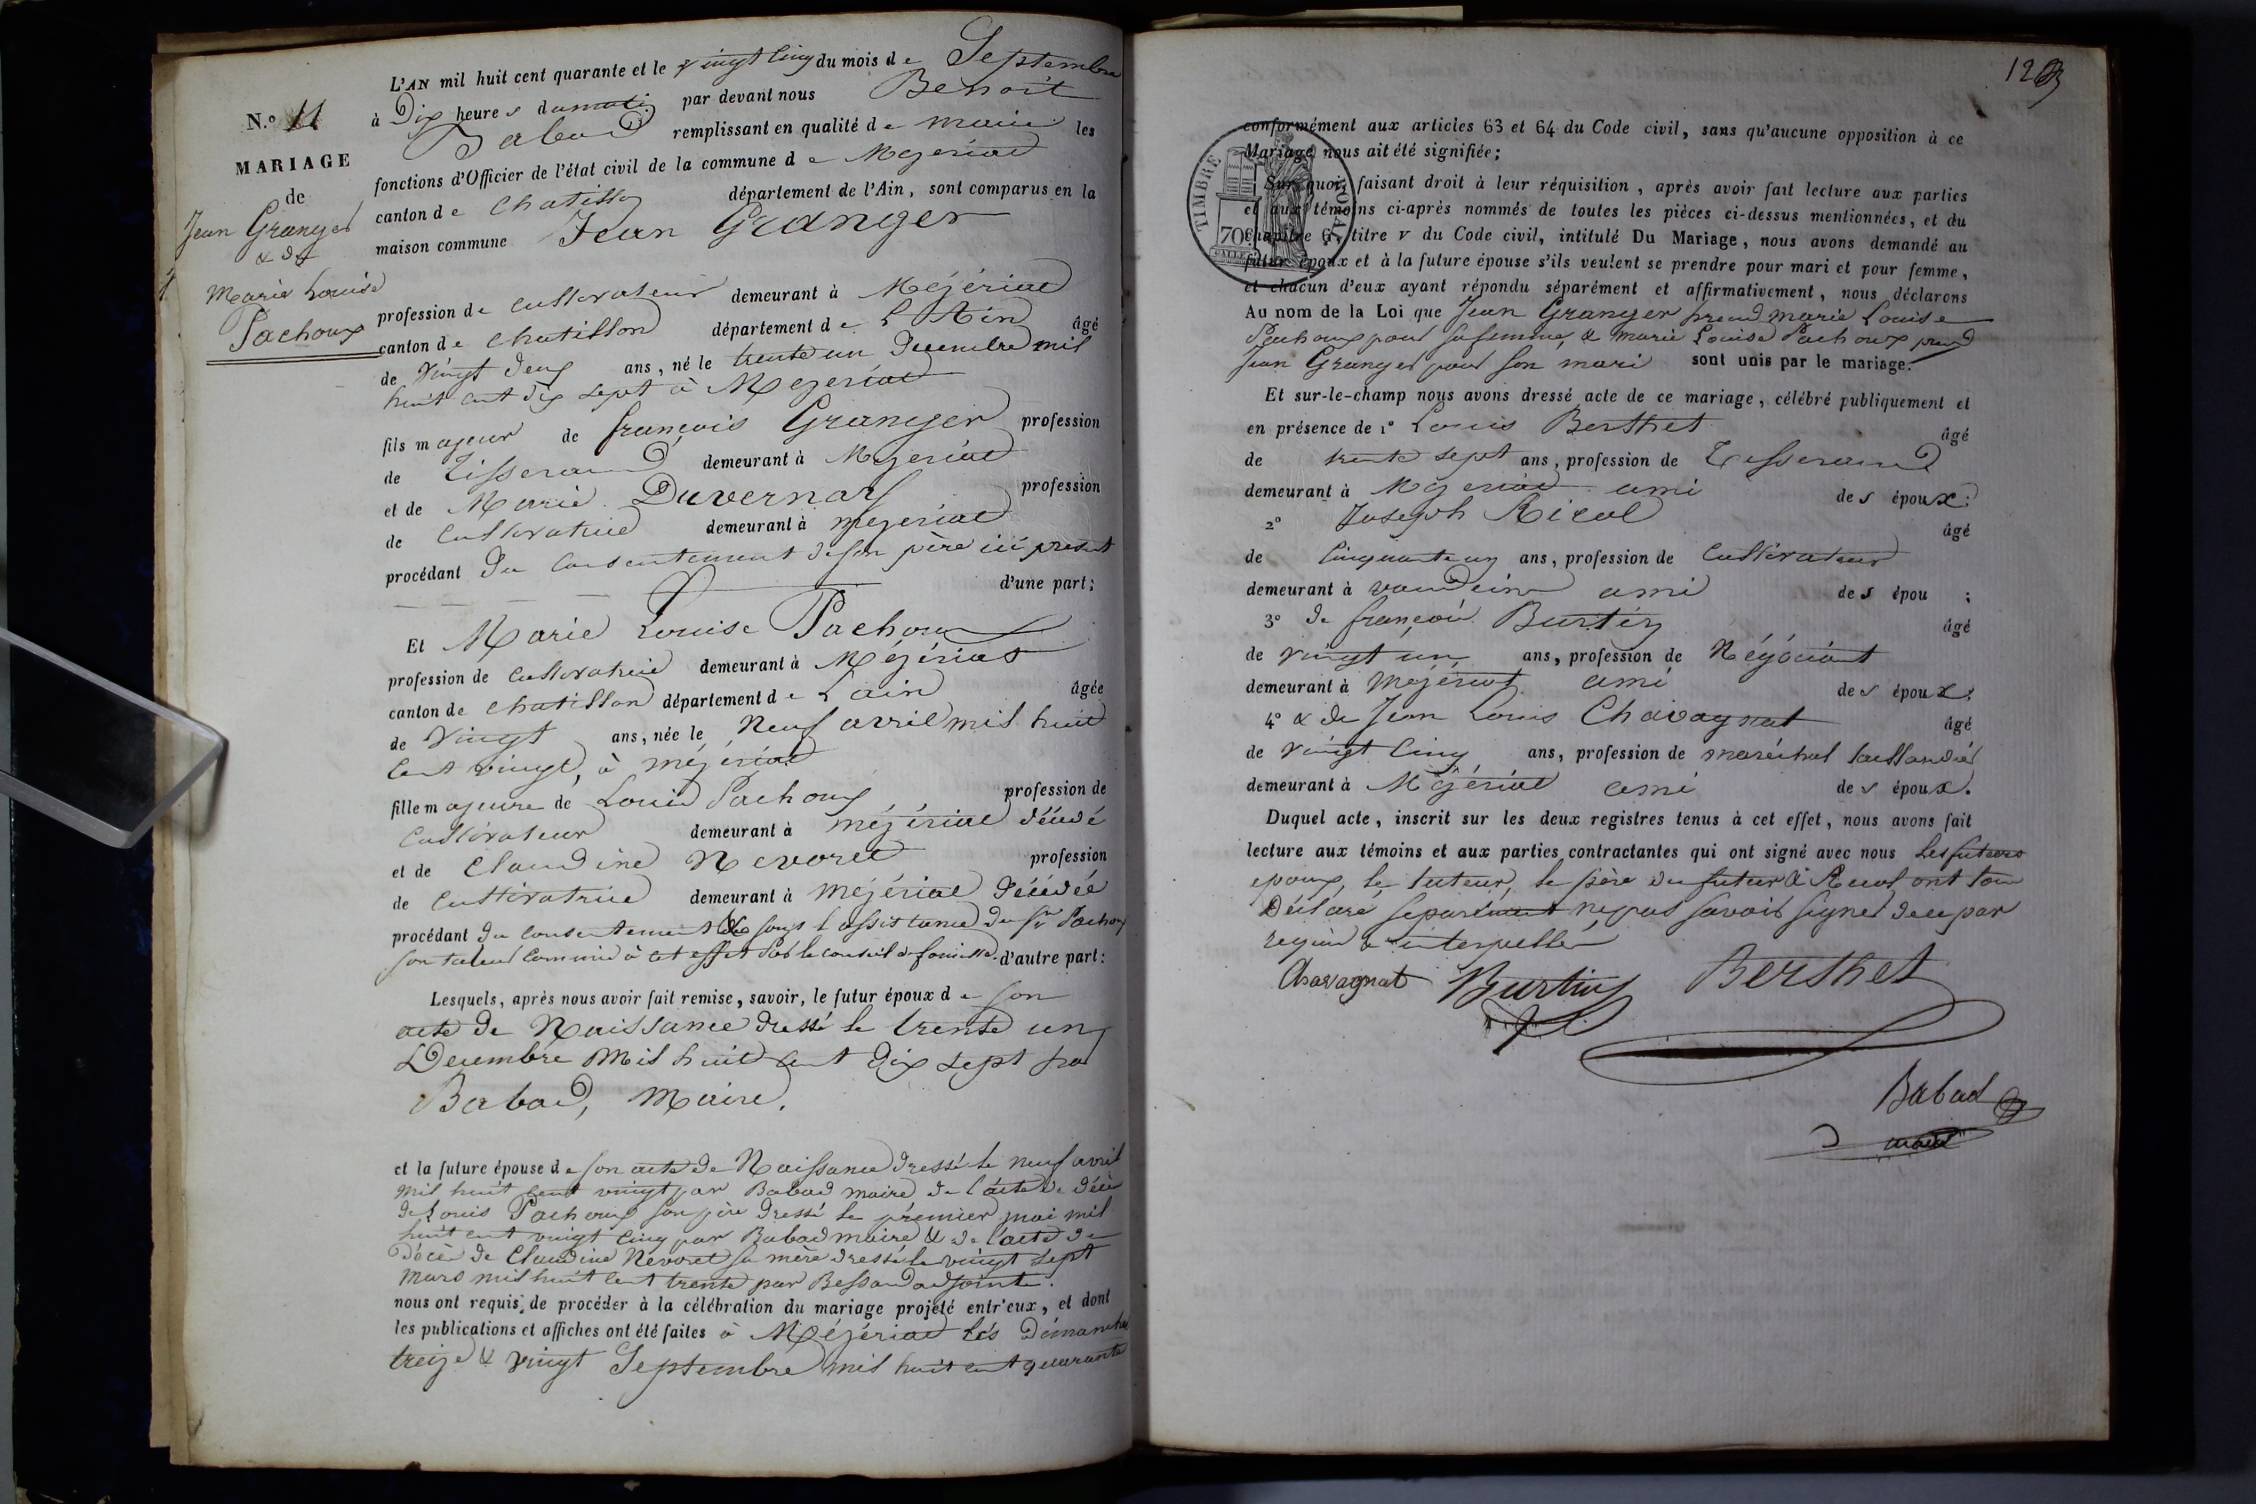 N.o 11
MARIAGE
de
Jean Granger
& de
Marie Louise
Pachoux
L'AN mil huit cent quarante et le vingt cinq du mois de Septembre
à Dix heures du matin par devant nous Benoit
Babad remplissant en qualité de maire les
fonctions d'Officier de l'état civil de la commune de Mezeriat
canton de Chatillon département de l'Ain, sont comparus en la
maison commune Jean Granger
profession de cultivateur demeurant à Mézériat
canton de Chatillon département de L'Ain âgé
de Vingt deux ans, né le trente un Decembre mil
huit cent dix sept à Mezeriat
fils majeur de françois Granger profession
de Tisserand demeurant à Mezeriat
et de Marie Duvernay profession
de Cultivatrice demeurant à mezeriat
procédant du consentement de son père ici présent
d'une part;
Et Marie Louise Pachoux
profession de cultivatrice demeurant à Mézériat
canton de Chatillon département de L'ain âgée
de Vingt ans, née le Neuf avril mil huit
cent vingt, à mézériat
fille majeure de Louis Pachoux profession de
Cultivateur demeurant à mézériat décédé
et de Claudine Nevoret profession
de Cultivatrice demeurant à mézériat décédée
procédant du consentement & sous l'assistance du Sr Pachoux
son tuteur commis à cet effet par le conseil de famille d'autre part:
Lesquels, après nous avoir fait remise, savoir, le futur époux de son
acte de Naissance dressé le trente un
Decembre Mil huit cent dix sept par
Babad, Maire.
et la future épouse de son acte de Naissance dressé le neuf avril
mil huit cent vingt par Babad maire de l'acte de décès
de Louis Pachoux son père dressé le premier mai mil
huit cent vingt cinq par Babad maire & de l'acte de
Décès de Claudine Nevoret sa mère dressé le vingt sept
mars mil huit cent trente par Bessand adjoint.
nous ont requis de procéder à la célébration du mariage projeté entr'eux, et dont
les publications et affiches ont été faites à Mézériat les Dimanches
treize & vingt Septembre mil huit cent quarante
TIMBRE ROYAL
70c
conformément aux articles 63 et 64 du Code civil, sans qu'aucune opposition à ce
Mariage nous ait été signifiée;
Sur quoi, faisant droit à leur réquisition, après avoir fait lecture aux parties
et aux témoins ci-après nommés de toutes les pièces ci-dessus mentionnées, et du
chapitre 6, titre v du Code civil, intitulé Du Mariage, nous avons demandé au
futur époux et à la future épouse s'ils veulent se prendre pour mari et pour femme,
et chacun d'eux ayant répondu séparément et affirmativement, nous déclarons
Au nom de la Loi que Jean Granger prend marie Louise
Pachoux pour sa femme, & marie Louise Pachoux prend
Jean Granger pour son mari sont unis par le mariage.
Et sur-le-champ nous avons dressé acte de ce mariage, célébré publiquement et
en présence de 1o Louis Berthet âgé
de trente sept ans, profession de Tisserand
demeurant à Mezeriat ami des époux:
2o Joseph Ricol âgé
de Cinquante un ans, profession de Cultivateur
demeurant à ami des épou ;
3o de françois Burtin âgé
de vingt un ans, profession de Négociant
demeurant à Mézériat ami des époux;
4o & de Jean Louis Chavagnat âgé
de vingt cinq ans, profession de maréchal taillandier
demeurant à Mézériat ami des époux.
Duquel acte, inscrit sur les deux registres tenus à cet effet, nous avons fait
lecture aux témoins et aux parties contractantes qui ont signé avec nous Les futurs
epoux, le tuteur, le père du futur & Ricol ont tous
Déclaré séparément ne pas savoir signer de ce par
requis & interpellés
Chavagnat Burtin Berthet
Babad
maire